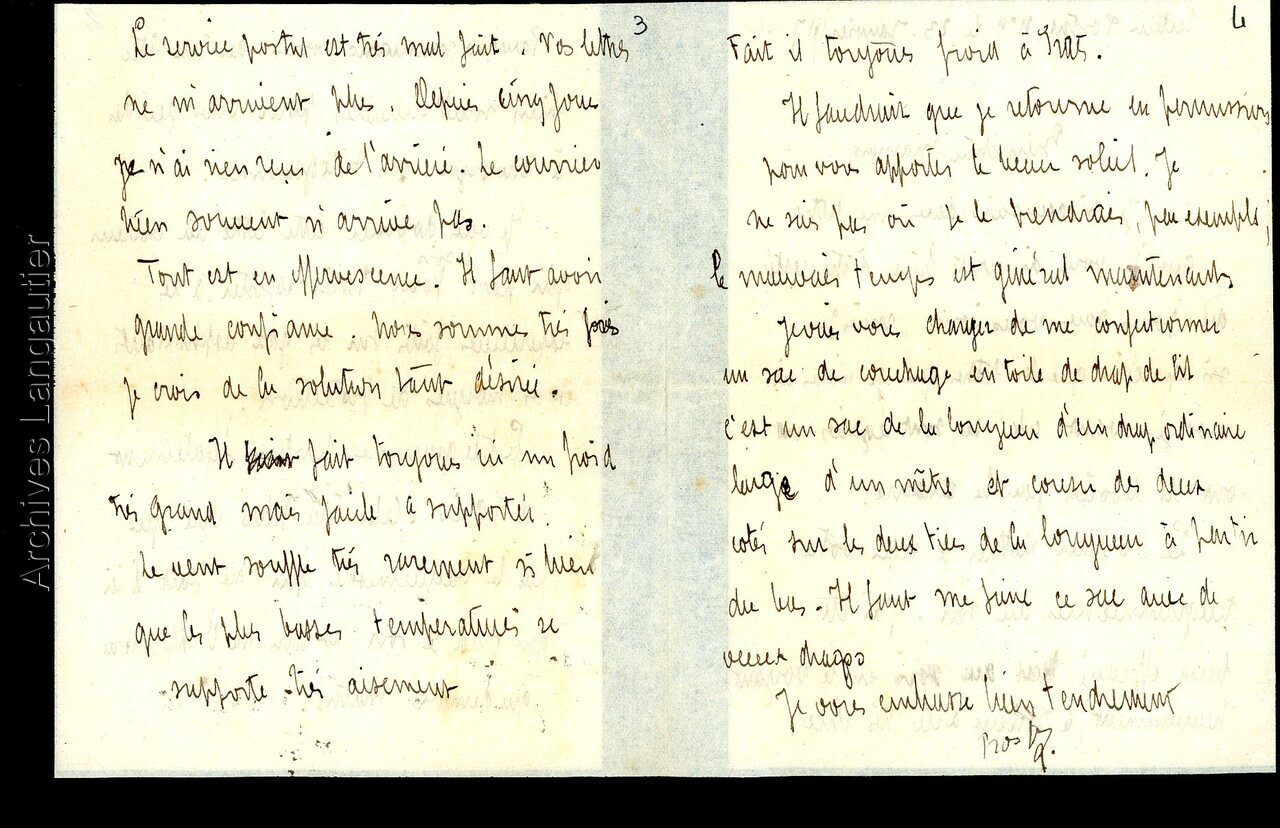 3
Le service postal est très mal fait. Vos lettres
ne m'arrivent plus. Depuis cinq jours
je n'ai rien reçu de l'arrière. Le courrier
bien souvent n'arrive pas.
Tout est en effervescence. Il faut avoir
grande confiance. Nous sommes très près
je crois de la solution tant désirée.
Il fait toujours ici un froid
très grand mais facile a supporter.
Le vent souffle très rarement si bien
que les plus basses températures se
supporte très aisement
4
Fait il toujours froid à
Il faudrait que je retourne en permission
pour vous apporter le beau soleil. Je
ne sais pas où je le prendrais, par exemple,
le mauvais temps est général maintenant
Je vais vous charger de me confectionner
un sac de couchage en toile de drap de lit
c'est un sac de la longueur d'un drap ordinaire
large d'un mètre et cousu des deux
cotés sur les deux tiers de la longueur à partir
du bas. Il faut me faire ce sac avec de
vieux draps
Je vous embrasse bien tendrement
Archives Langautier